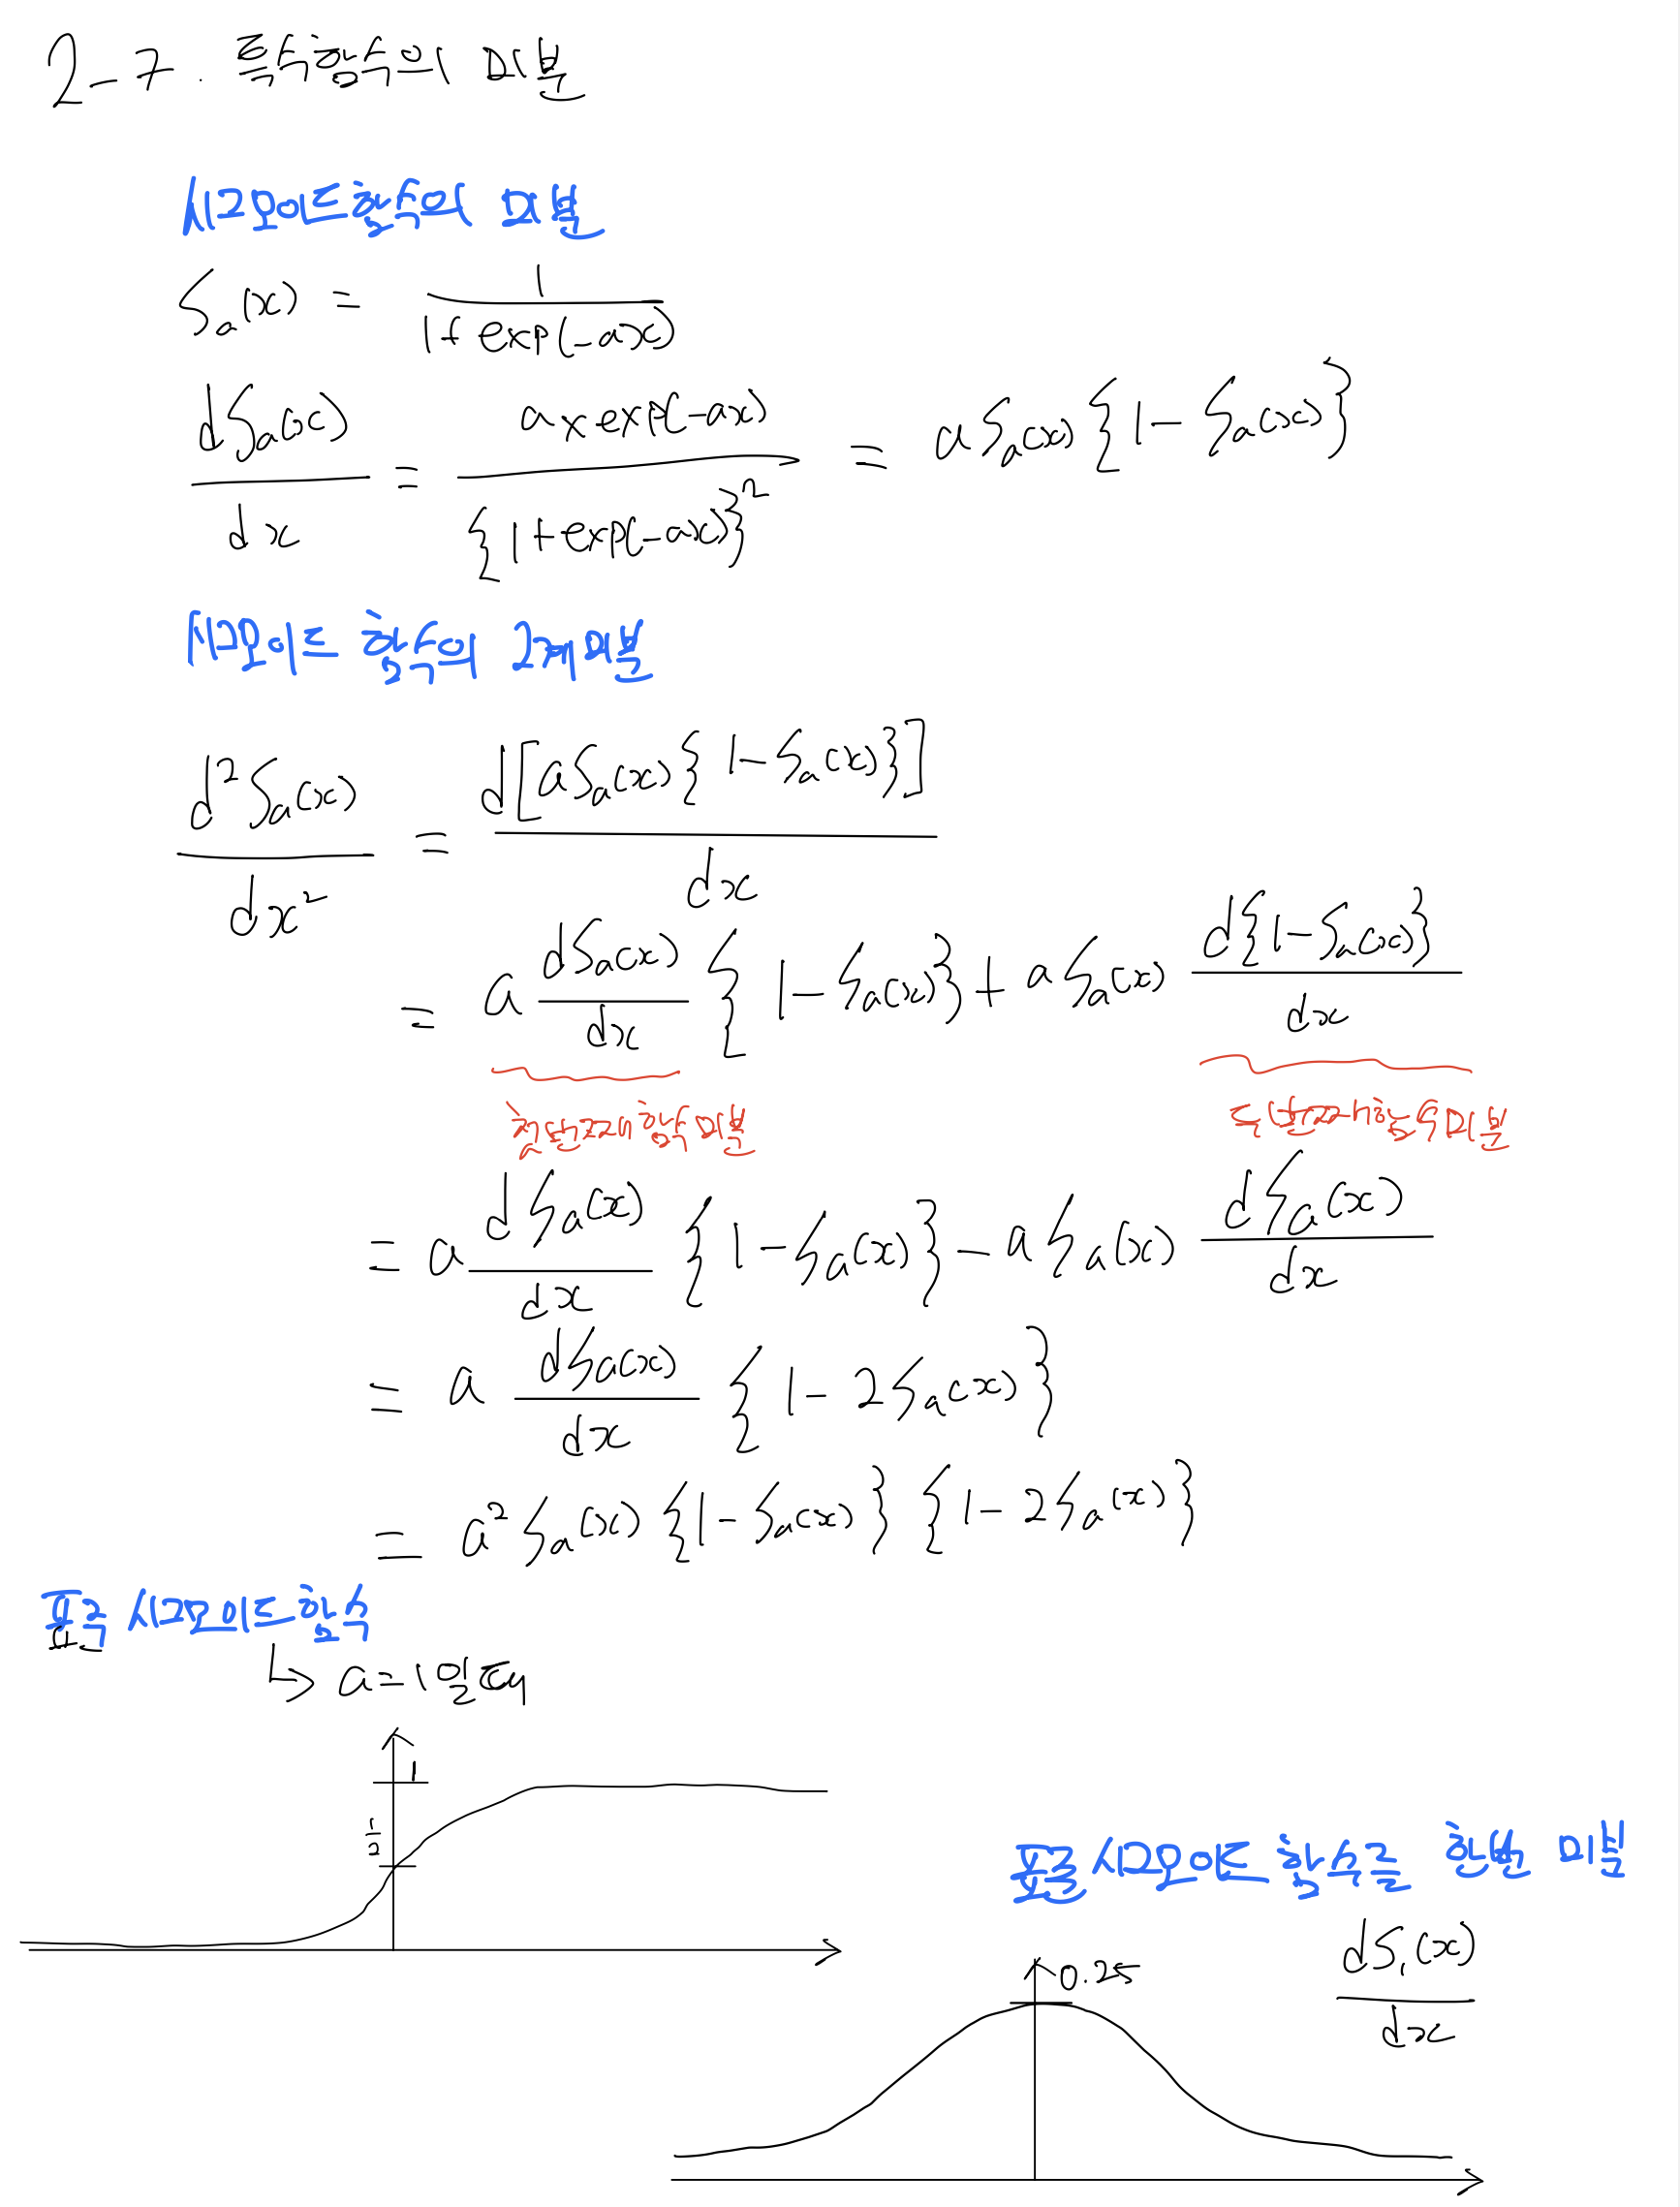 2-7. 특수함수의 미분
시그모이드함수의 미분
ςₐ(x) = 1 / (1+exp(-ax))
dςₐ(x)/dx = a×exp(-ax) / {1+exp(-ax)}² = aςₐ(x){1-ςₐ(x)}
시그모이드 함수의 2계미분
d²ςₐ(x)/dx² = d[aςₐ(x){1-ςₐ(x)}]/dx
= a dςₐ(x)/dx {1-ςₐ(x)} + aςₐ(x) d{1-ςₐ(x)}/dx
첫번째함수미분 두번째함수미분
= a dςₐ(x)/dx {1-ςₐ(x)} - aςₐ(x) dςₐ(x)/dx
= a dςₐ(x)/dx {1-2ςₐ(x)}
= a²ςₐ(x){1-ςₐ(x)}{1-2ςₐ(x)}
표준 시그모이드함수
↳ a=1일때
1
1/2
표준시그모이드 함수를 한번 미분
dς₁(x)/dx
0.25